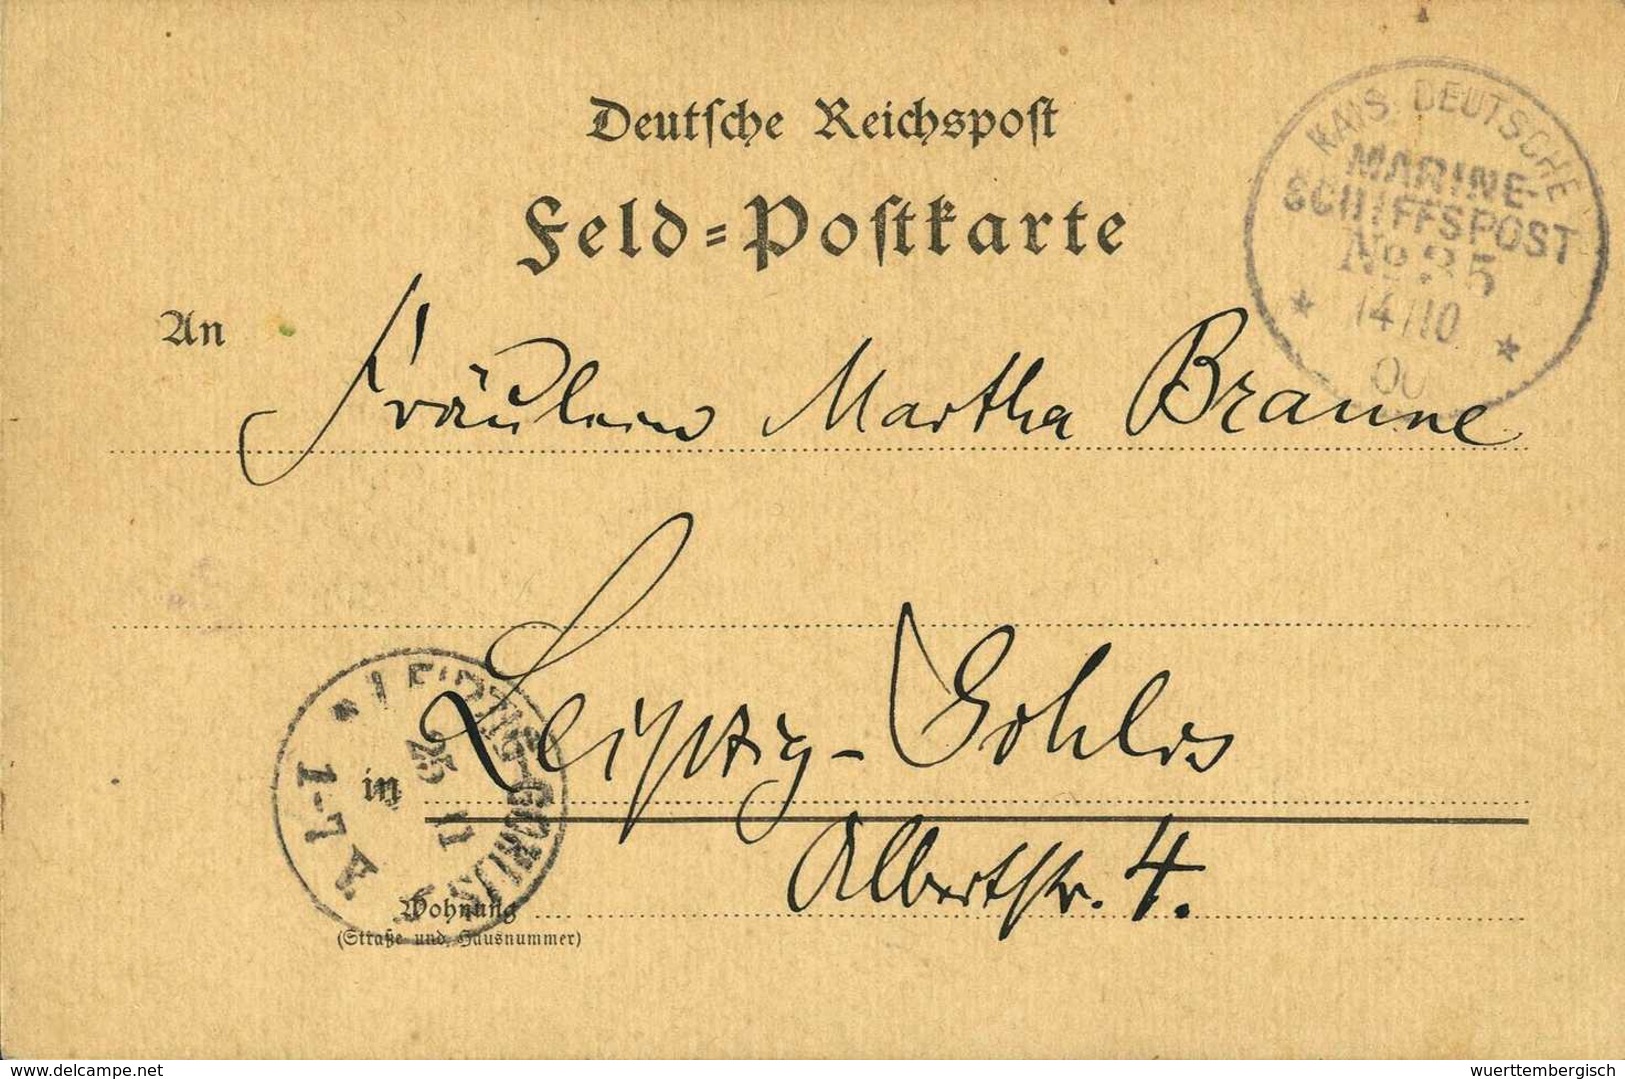 Deutsche Reichspost
Feld-Postkarte
KAIS. DEUTSCHE
MARINE-
SCHIFFSPOST
No 35
14/10
00
An Fräulein Martha Braune
LEIPZIG-GOHLIS
25 11
1-7 A
in Leipzig-Gohlis
Albertstr. 4.
Wohnung
(Straße und Hausnummer)
delcampe.net
wuerttembergisch